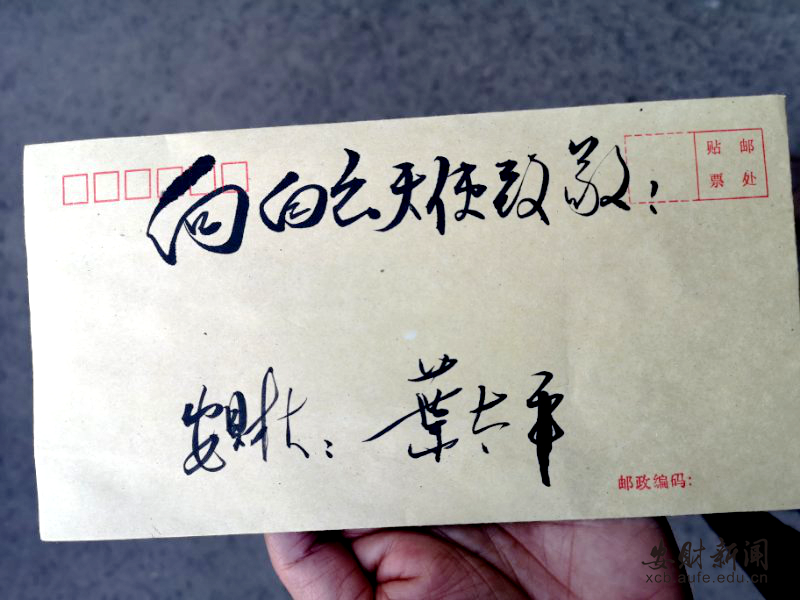 向白衣天使致敬！
贴 邮
票 处
安财大：葉太平
邮政编码：
安財新闻
xcb.aufe.edu.cn